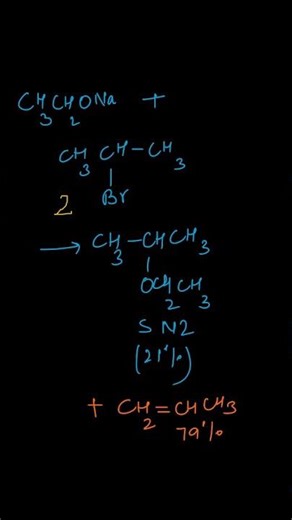 CH3CH2ONa +
CH3 CH-CH3
|
Br
2
→ CH3-CHCH3
|
OCH2CH3
SN2
(21%)
+ CH2=CHCH3
79%